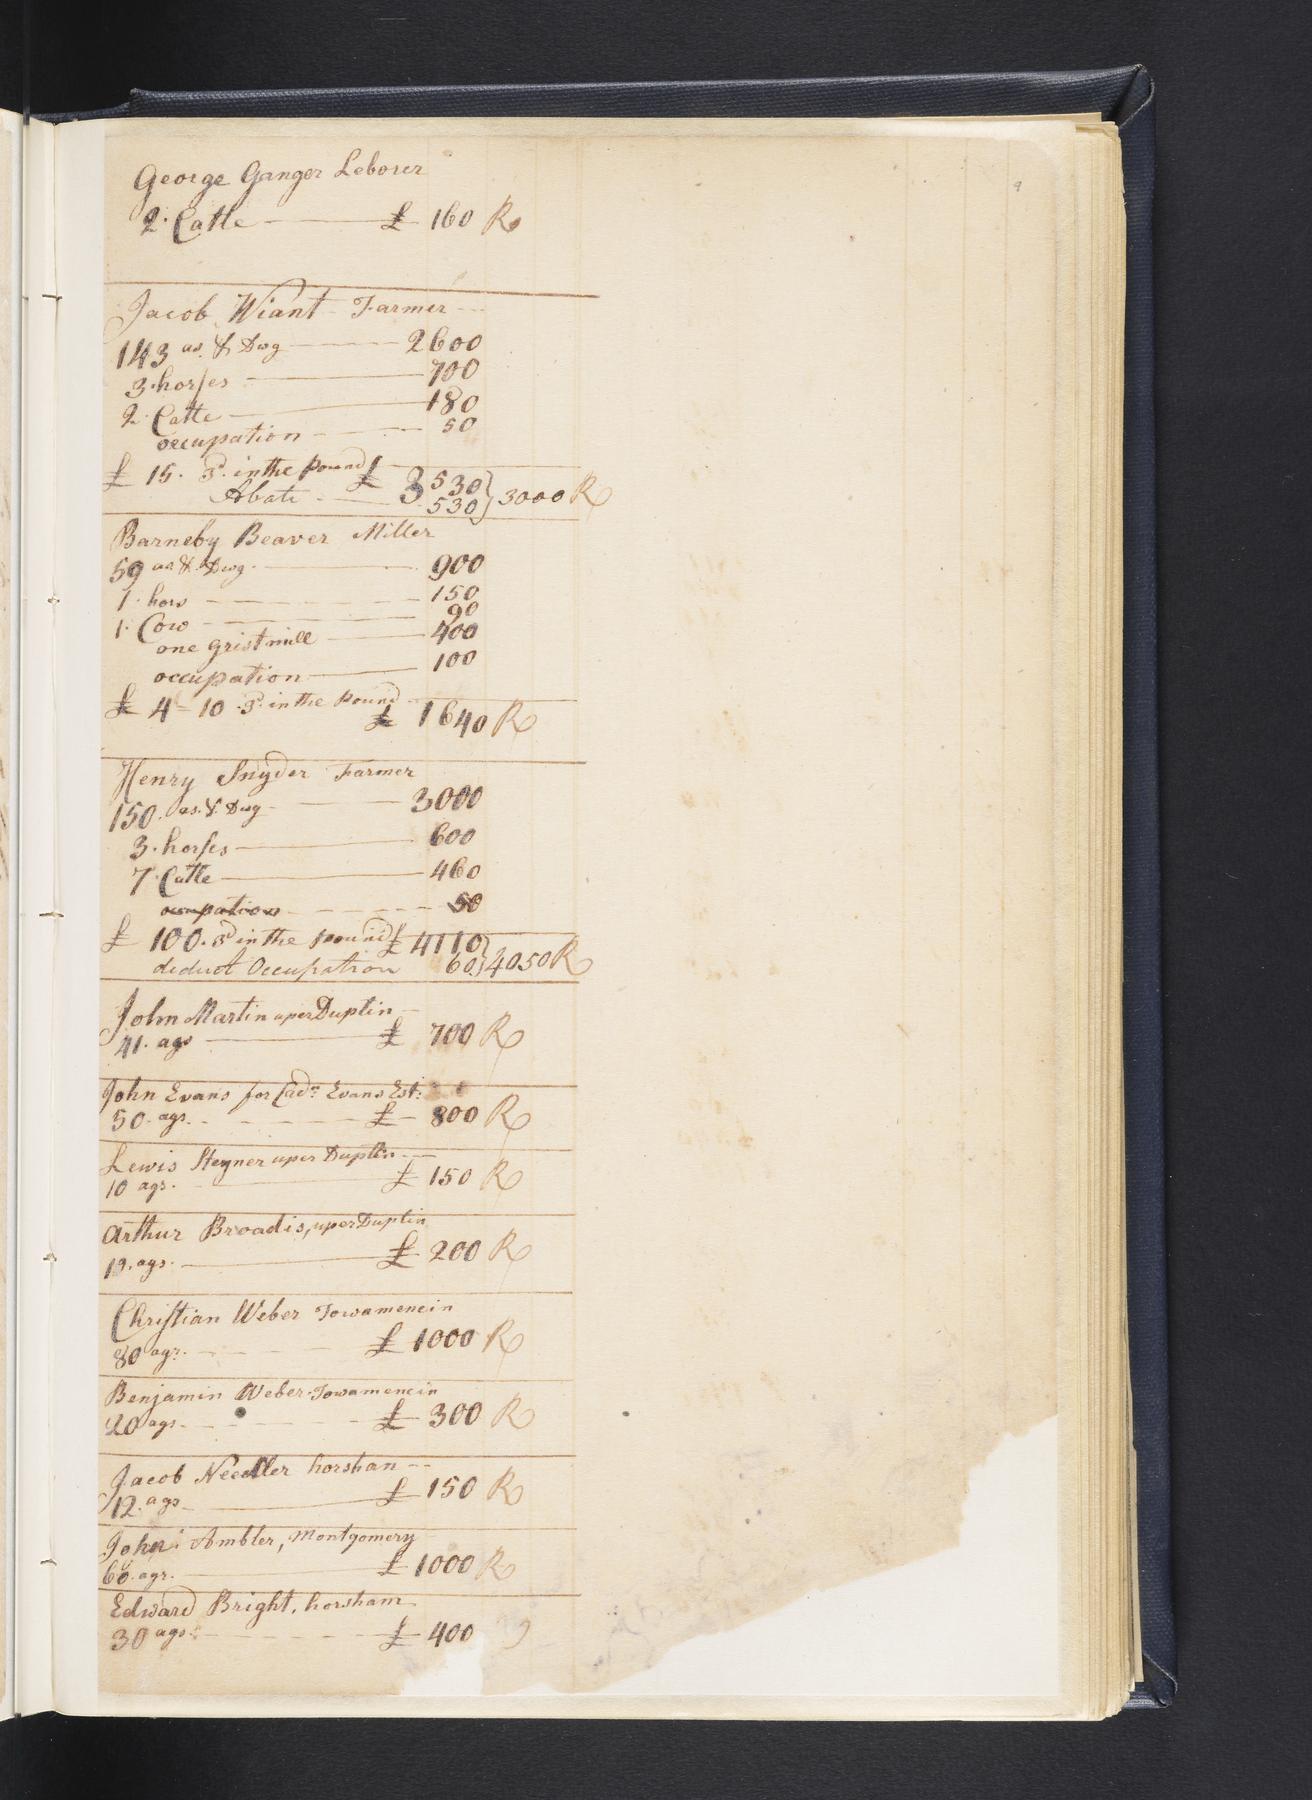 9
George Ganger Leborer
2. Catle £ 160 R
Jacob Wiant Farmer
143 as. & Dwg 2600
3. horses 700
2. Catle 180
occupation 50
£ 15. Pr. in the pound £ 3530
Abate 530 } 3000 R
Barneby Beaver Miller
59 as & Dwg. 900
1. hors 150
1. Cow 90
one gristmill 400
occupation 100
£ 4 = 10 Pr. in the pound £ 1640 R
Henry Snyder Farmer
150. as. & Dwg 3000
3. horses 600
7. Catle 460
occupation 50
£ 100. Pr in the pound £ 4110
deduct Occupation 60 } 4050 R
John Martin uper Duplin
41. ags £ 700 R
John Evans for Cadr. Evans Est:
50. ags. £ 800 R
Lewis Steyner uper Duplin
10 ags. £ 150 R
Arthur Broadis, uper Duplin
19. ags. £ 200 R
Christian Weber Towamencin
80 agr. £ 1000 R
Benjamin Weber Towamencin
20 ags. £ 300 R
Jacob horshan
12. ags £ 150 R
John Ambler, Montgomery
60. agr. £ 1000 R
Edward Bright, horsham
30 ags. £ 400